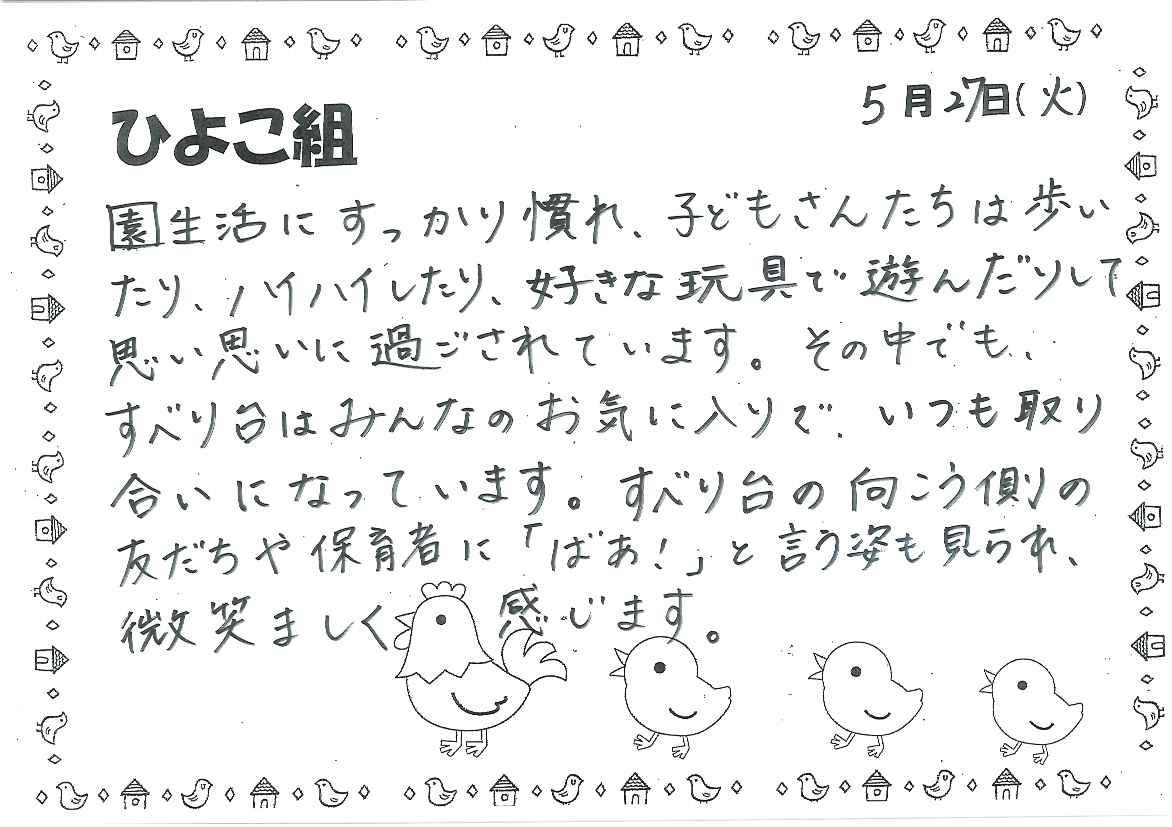 5月27日(火)
ひよこ組
園生活にすっかり慣れ、子どもさんたちは歩い
たり、ハイハイしたり、好きな玩具で遊んだりして
思い思いに過ごされています。その中でも、
すべり台はみんなのお気に入りで、いつも取り
合いになっています。すべり台の向こう側の
友だちや保育者に「ばあ!」と言う姿も見られ、
微笑ましく感じます。